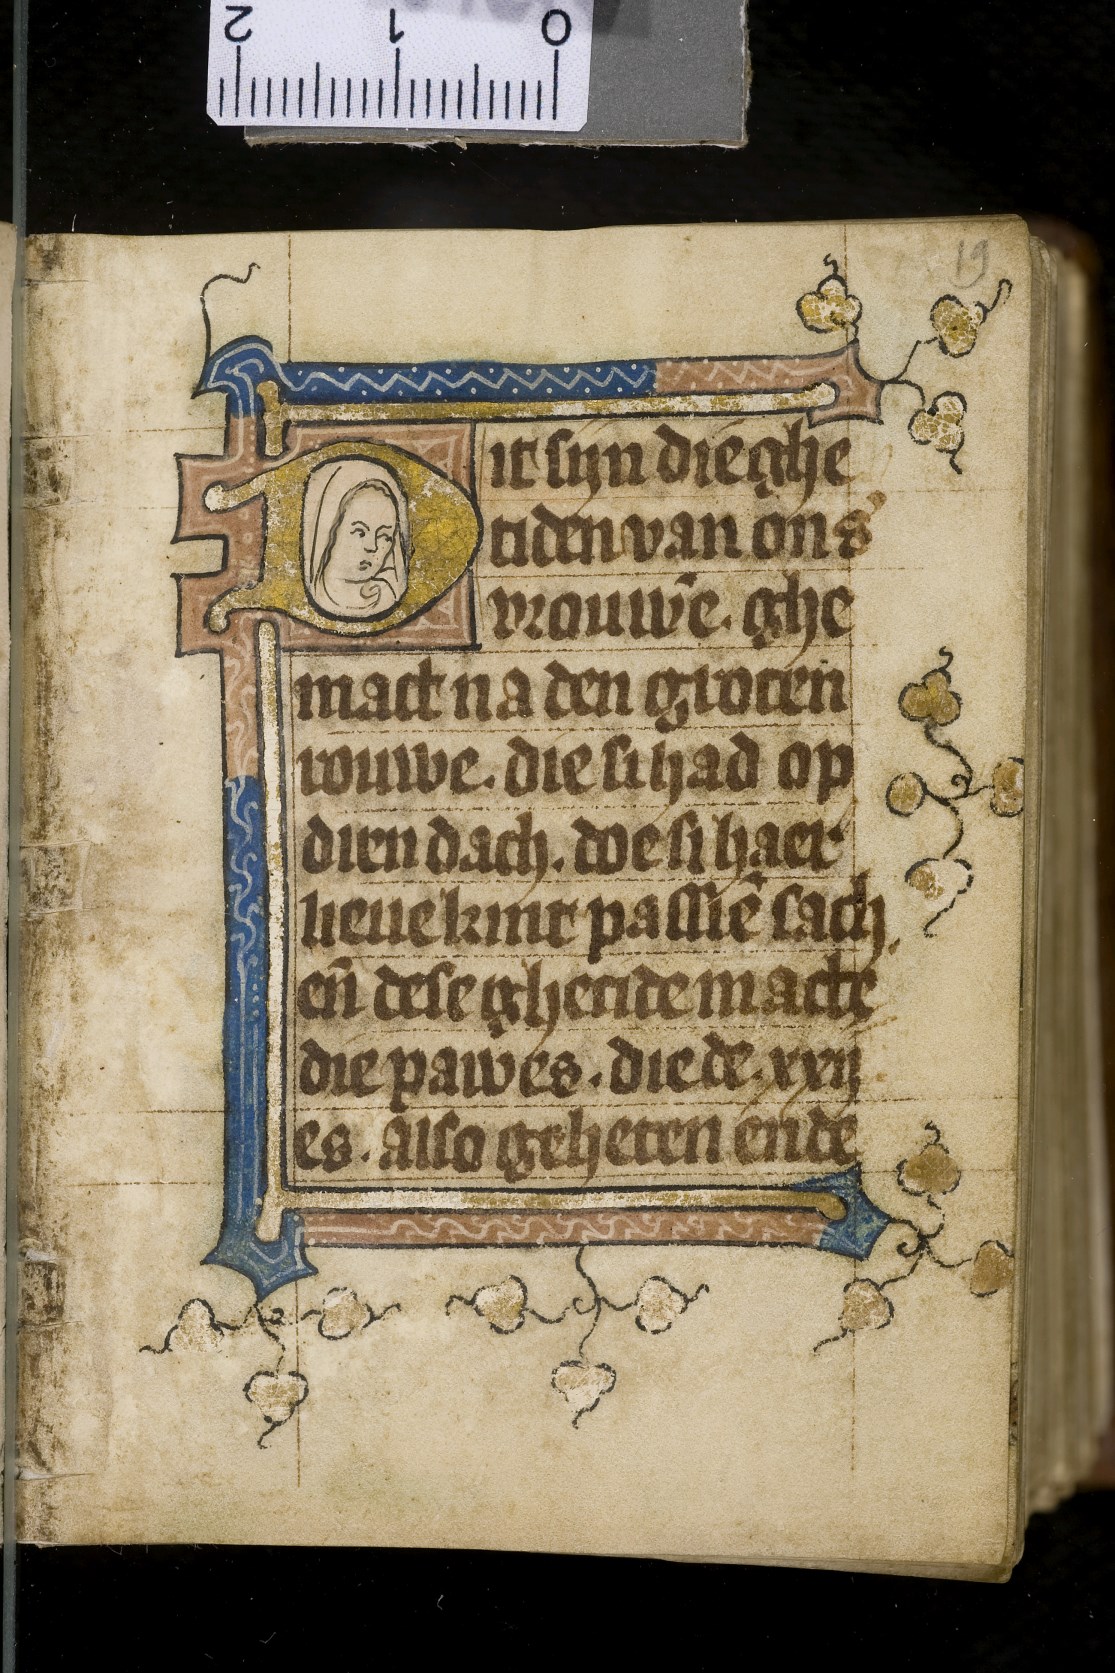 2 1 0
19
Dit sijn die ghe
tiden van ons'
vrouwē. ghe
mact na den groten
rouwe. die si had op
dien dach. doe si haer
lieue kint passiē sach.
en̄ dese ghetide macte
die pawes. die de .xxij.
es. also geheten ende